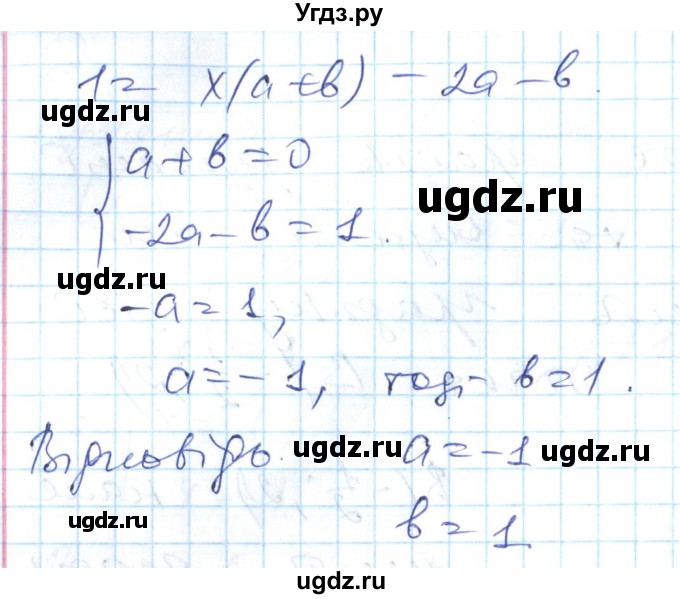 Угдз.ру
1 = x(a + b) - 2a - b.
ugdz.ru
a + b = 0
ugdz.ru
-2a - b = 1.
ugdz.ru
-a = 1,
ugdz.ru ugdz.ru
a = -1, тоді b = 1.
Відповідь. ugdz.ru a = -1 ugdz.ru
ugdz.ru b = 1
ugdz.ru